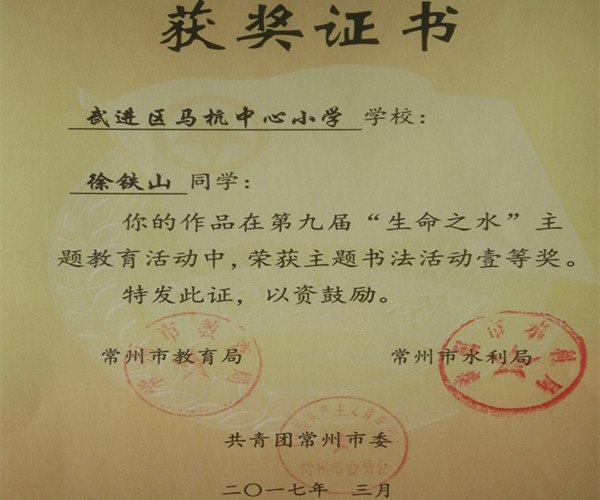 获奖证书
武进区马杭中心小学 学校：
徐铁山 同学：
你的作品在第九届“生命之水”主
题教育活动中，荣获主题书法活动壹等奖。
特发此证，以资鼓励。
常州市教育局 常州市水利局
共青团常州市委
二〇一七年 三月